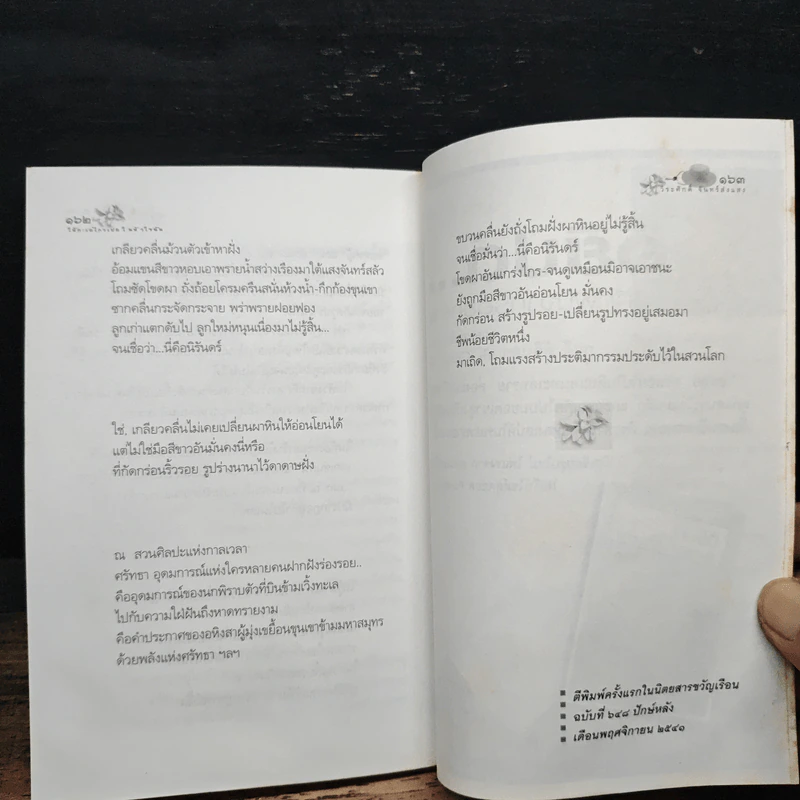 ๑๖๒
เกลียวคลื่นม้วนตัวเข้าหาฝั่ง
อ้อมแขนสีขาวหอบเอาพรายน้ำสว่างเรืองมาใต้แสงจันทร์สลัว
โถมซัดโขดผา ถั่งถ้อยโครมครืนสนั่นห้วงน้ำ-กึกก้องขุนเขา
ซากคลื่นกระจัดกระจาย พร่าพรายฝอยฟอง
ลูกเก่าแตกดับไป ลูกใหม่หนุนเนื่องมาไม่รู้สิ้น...
จนเชื่อว่า...นี่คือนิรันดร์
ใช่, เกลียวคลื่นไม่เคยเปลี่ยนผาหินให้อ่อนโยนได้
แต่ไม่ใช่มือสีขาวอันมั่นคงนี่หรือ
ที่กัดกร่อนริ้วรอย รูปร่างนานาไว้ดาดาษฝั่ง
ณ สวนศิลปะแห่งกาลเวลา
ศรัทธา อุดมการณ์แห่งใครหลายคนฝากฝังร่องรอย..
คืออุดมการณ์ของนกพิราบตัวที่บินข้ามเวิ้งทะเล
ไปกับความใฝ่ฝันถึงหาดทรายงาม
คือคำประกาศของอหิงสาผู้มุ่งเขยื้อนขุนเขาข้ามมหาสมุทร
ด้วยพลังแห่งศรัทธา ฯลฯ
๑๖๓
วีระศักดิ์ จันทร์ส่งแสง
ขบวนคลื่นยังถั่งโถมฝั่งผาหินอยู่ไม่รู้สิ้น
จนเชื่อมั่นว่า...นี่คือนิรันดร์
โขดผาอันแกร่งไกร-จนดูเหมือนมิอาจเอาชนะ
ยังถูกมือสีขาวอันอ่อนโยน มั่นคง
กัดกร่อน สร้างรูปรอย-เปลี่ยนรูปทรงอยู่เสมอมา
ชีพน้อยชีวิตหนึ่ง
มาเถิด, โถมแรงสร้างประติมากรรมประดับไว้ในสวนโลก
ตีพิมพ์ครั้งแรกในนิตยสารขวัญเรือน
ฉบับที่ ๖๔๘ ปักษ์หลัง
เดือนพฤศจิกายน ๒๕๔๑